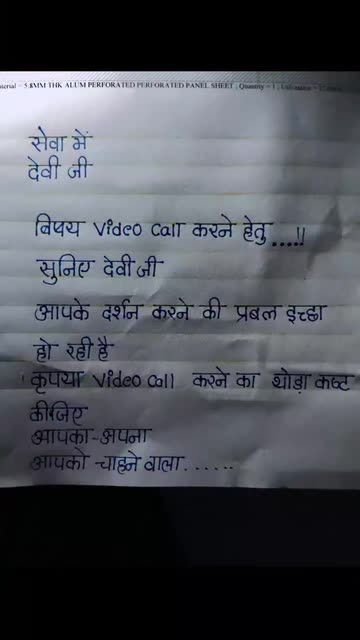 = 5.8MM THK ALUM PERFORATED PERFORATED PANEL SHEET , Quantity = 1 ;
सेवा में
देवी जी
विषय Video Call करने हेतु .....!!
सुनिए देवी जी
आपके दर्शन करने की प्रबल इच्छा
हो रही है
कृपया Video Call करने का थोड़ा कष्ट
कीजिए
आपका-अपना
आपको चाहने वाला......